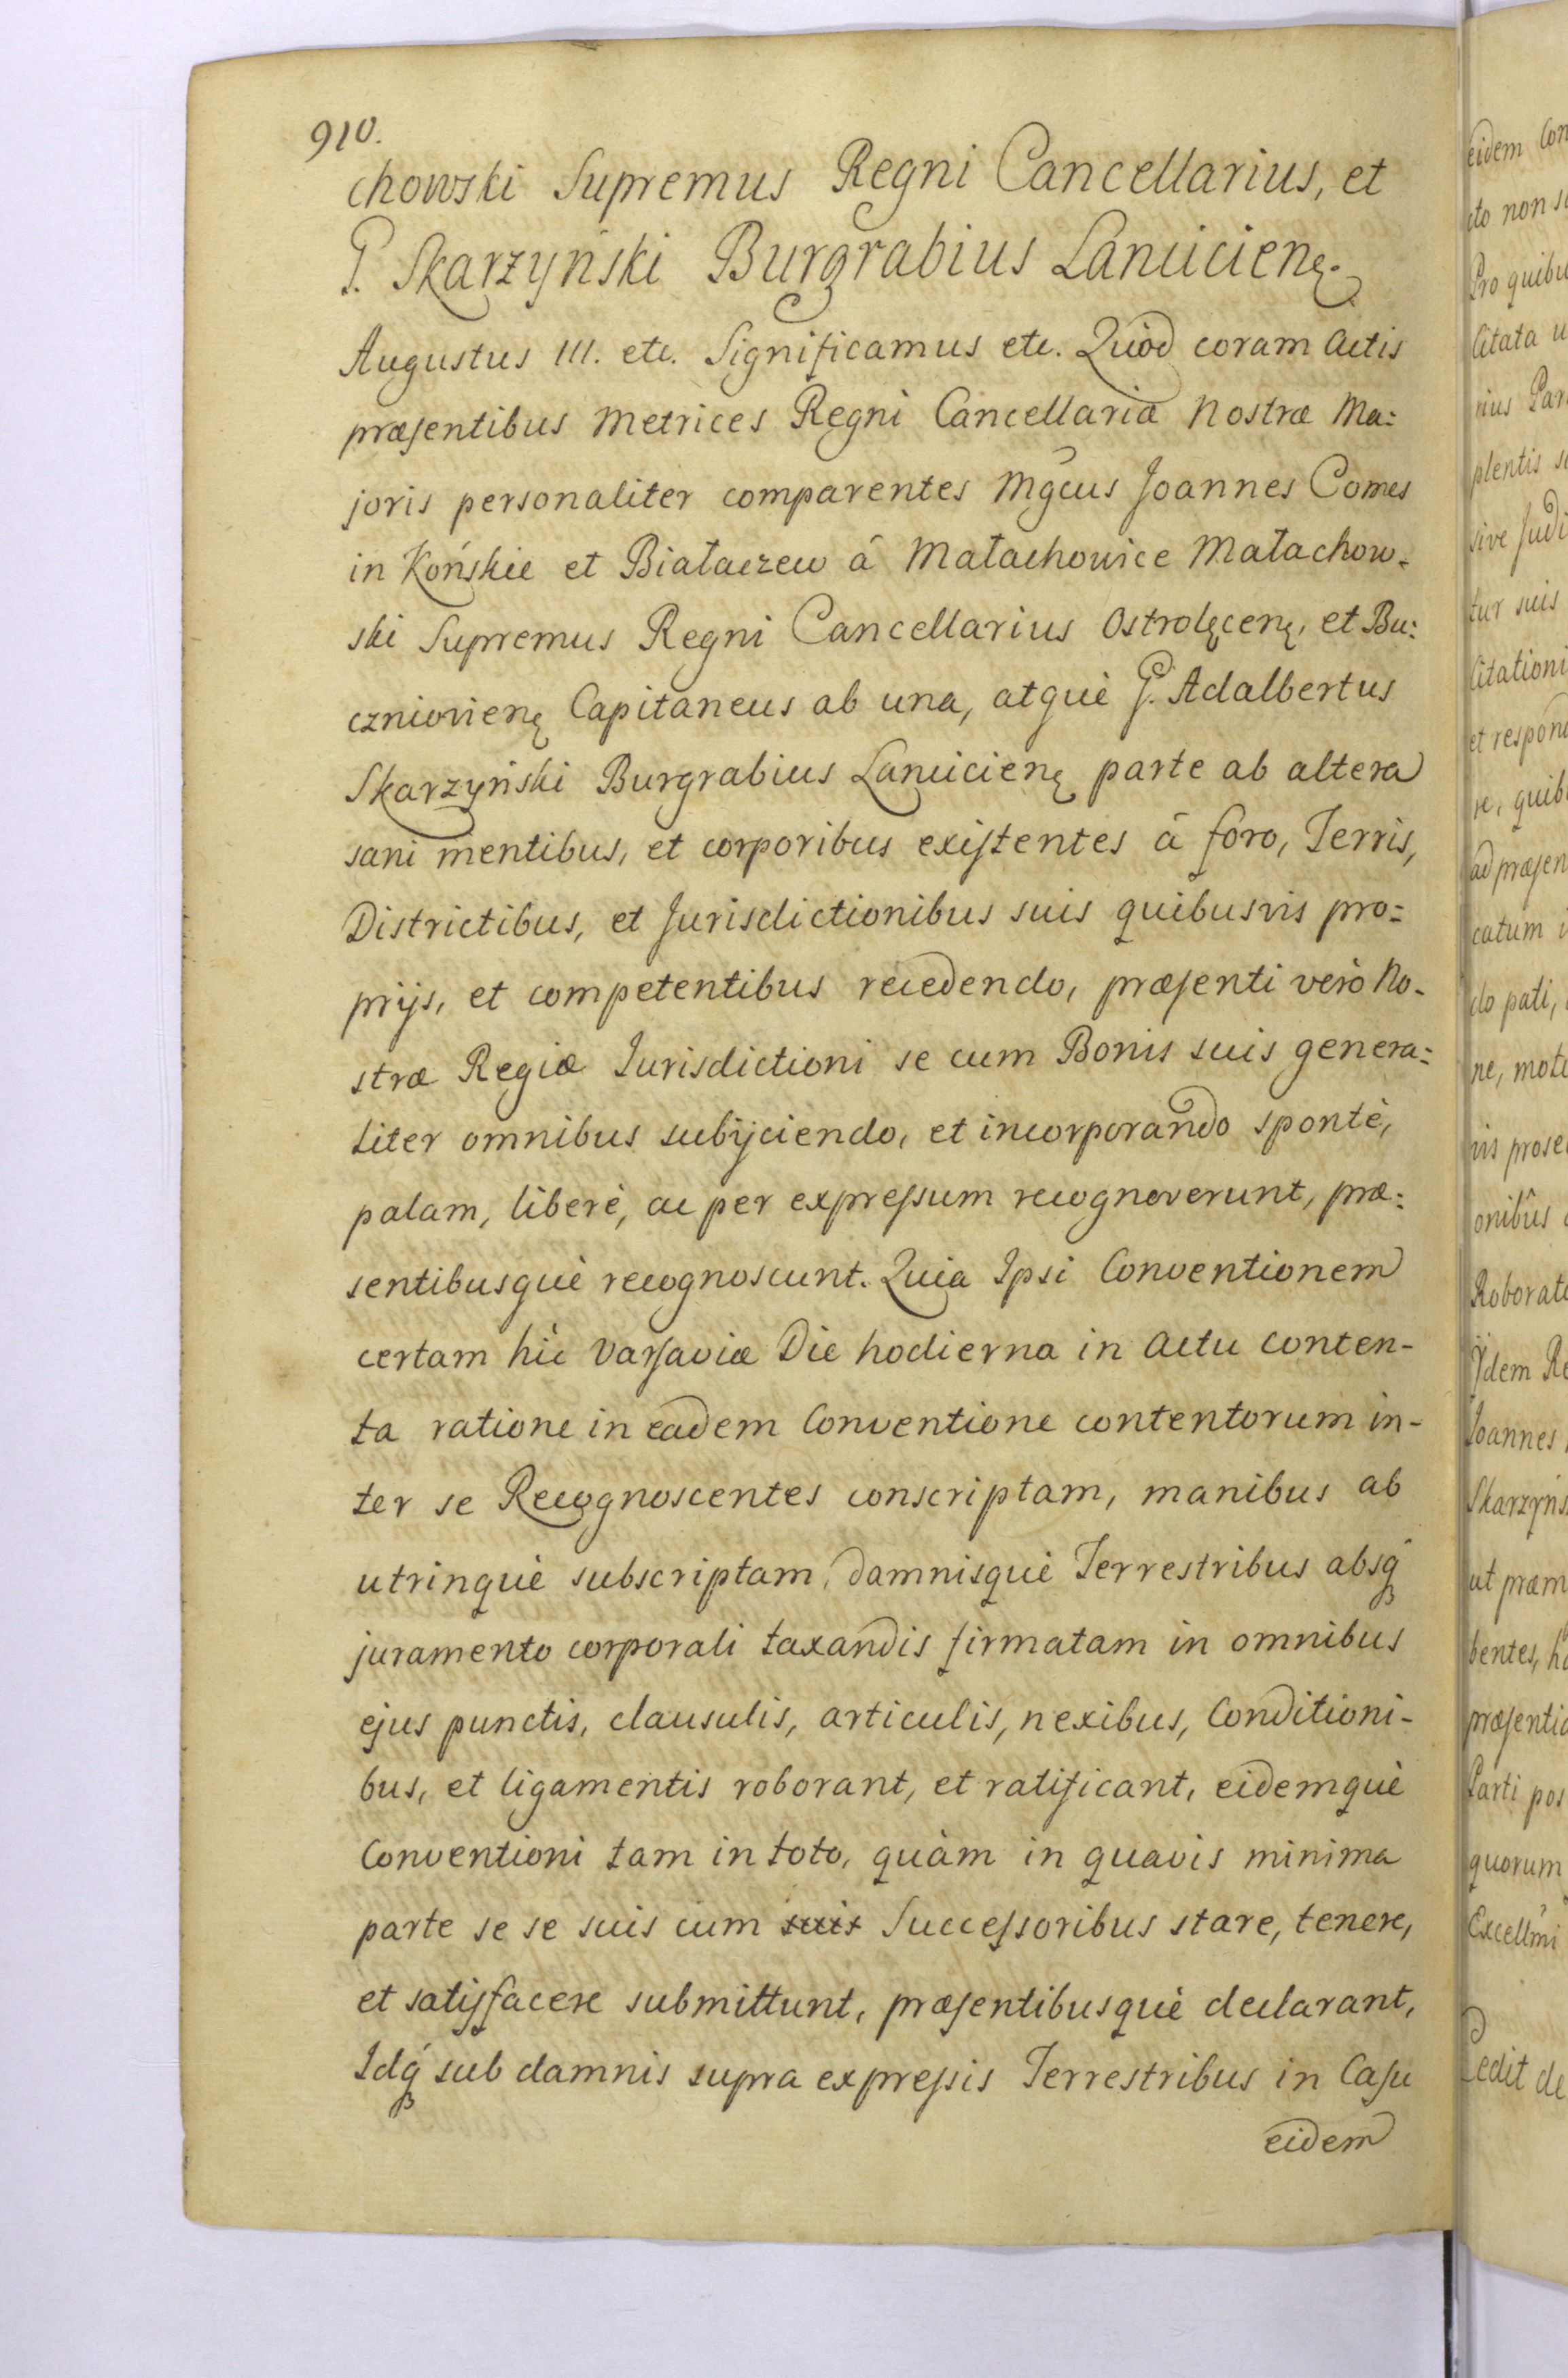 910.
chowski Supremus Regni Cancellarius, et
G. Skarzyński Burgrabius Lancicienę.
Augustus III. etc. Significamus etc. Quod coram Actis
præsentibus Metrices Regni Cancellariæ Nostræ Ma:
joris personaliter comparentes Mgcus Joannes Comes
in Końskie et Białaczew â Małachowice Małachow-
ski Supremus Regni Cancellarius Ostrolęcenę, et Bu:
czniovienę Capitaneus ab una, atquè G. Adalbertus
Skarzyński Burgrabius Lancicienę parte ab altera
sani mentibus, et corporibus existentes â foro, Terris,
Districtibus, et Jurisdictionibus suis quibusvis pro=
prijs, et competentibus recedendo, præsenti verò No-
stræ Regiæ Jurisdictioni se cum Bonis suis genera=
liter omnibus subijciendo, et incorporando spontè,
palam, liberè, ac per expressum recognoverunt, præ:
sentibusquè recognoscunt. Quia Ipsi Conventionem
certam hìc Varsaviæ Die hodierna in Actu conten-
ta ratione in eadem Conventione contentorum in-
ter se Recognoscentes conscriptam, manibus ab
utrinquè subscriptam, damnisquè Terrestribus absq́
juramento corporali taxandis firmatam in omnibus
ejus punctis, clausulis, articulis, nexibus, Conditioni-
bus, et ligamentis roborant, et ratificant, eidemquè
Conventioni tam in toto, quàm in quavis minima
parte se se suis cum suis Successoribus stare, tenere,
et satisfacere submittunt, præsentibusquè declarant,
Idq́ sub damnis supra expressis Terrestribus in Casu
eidem